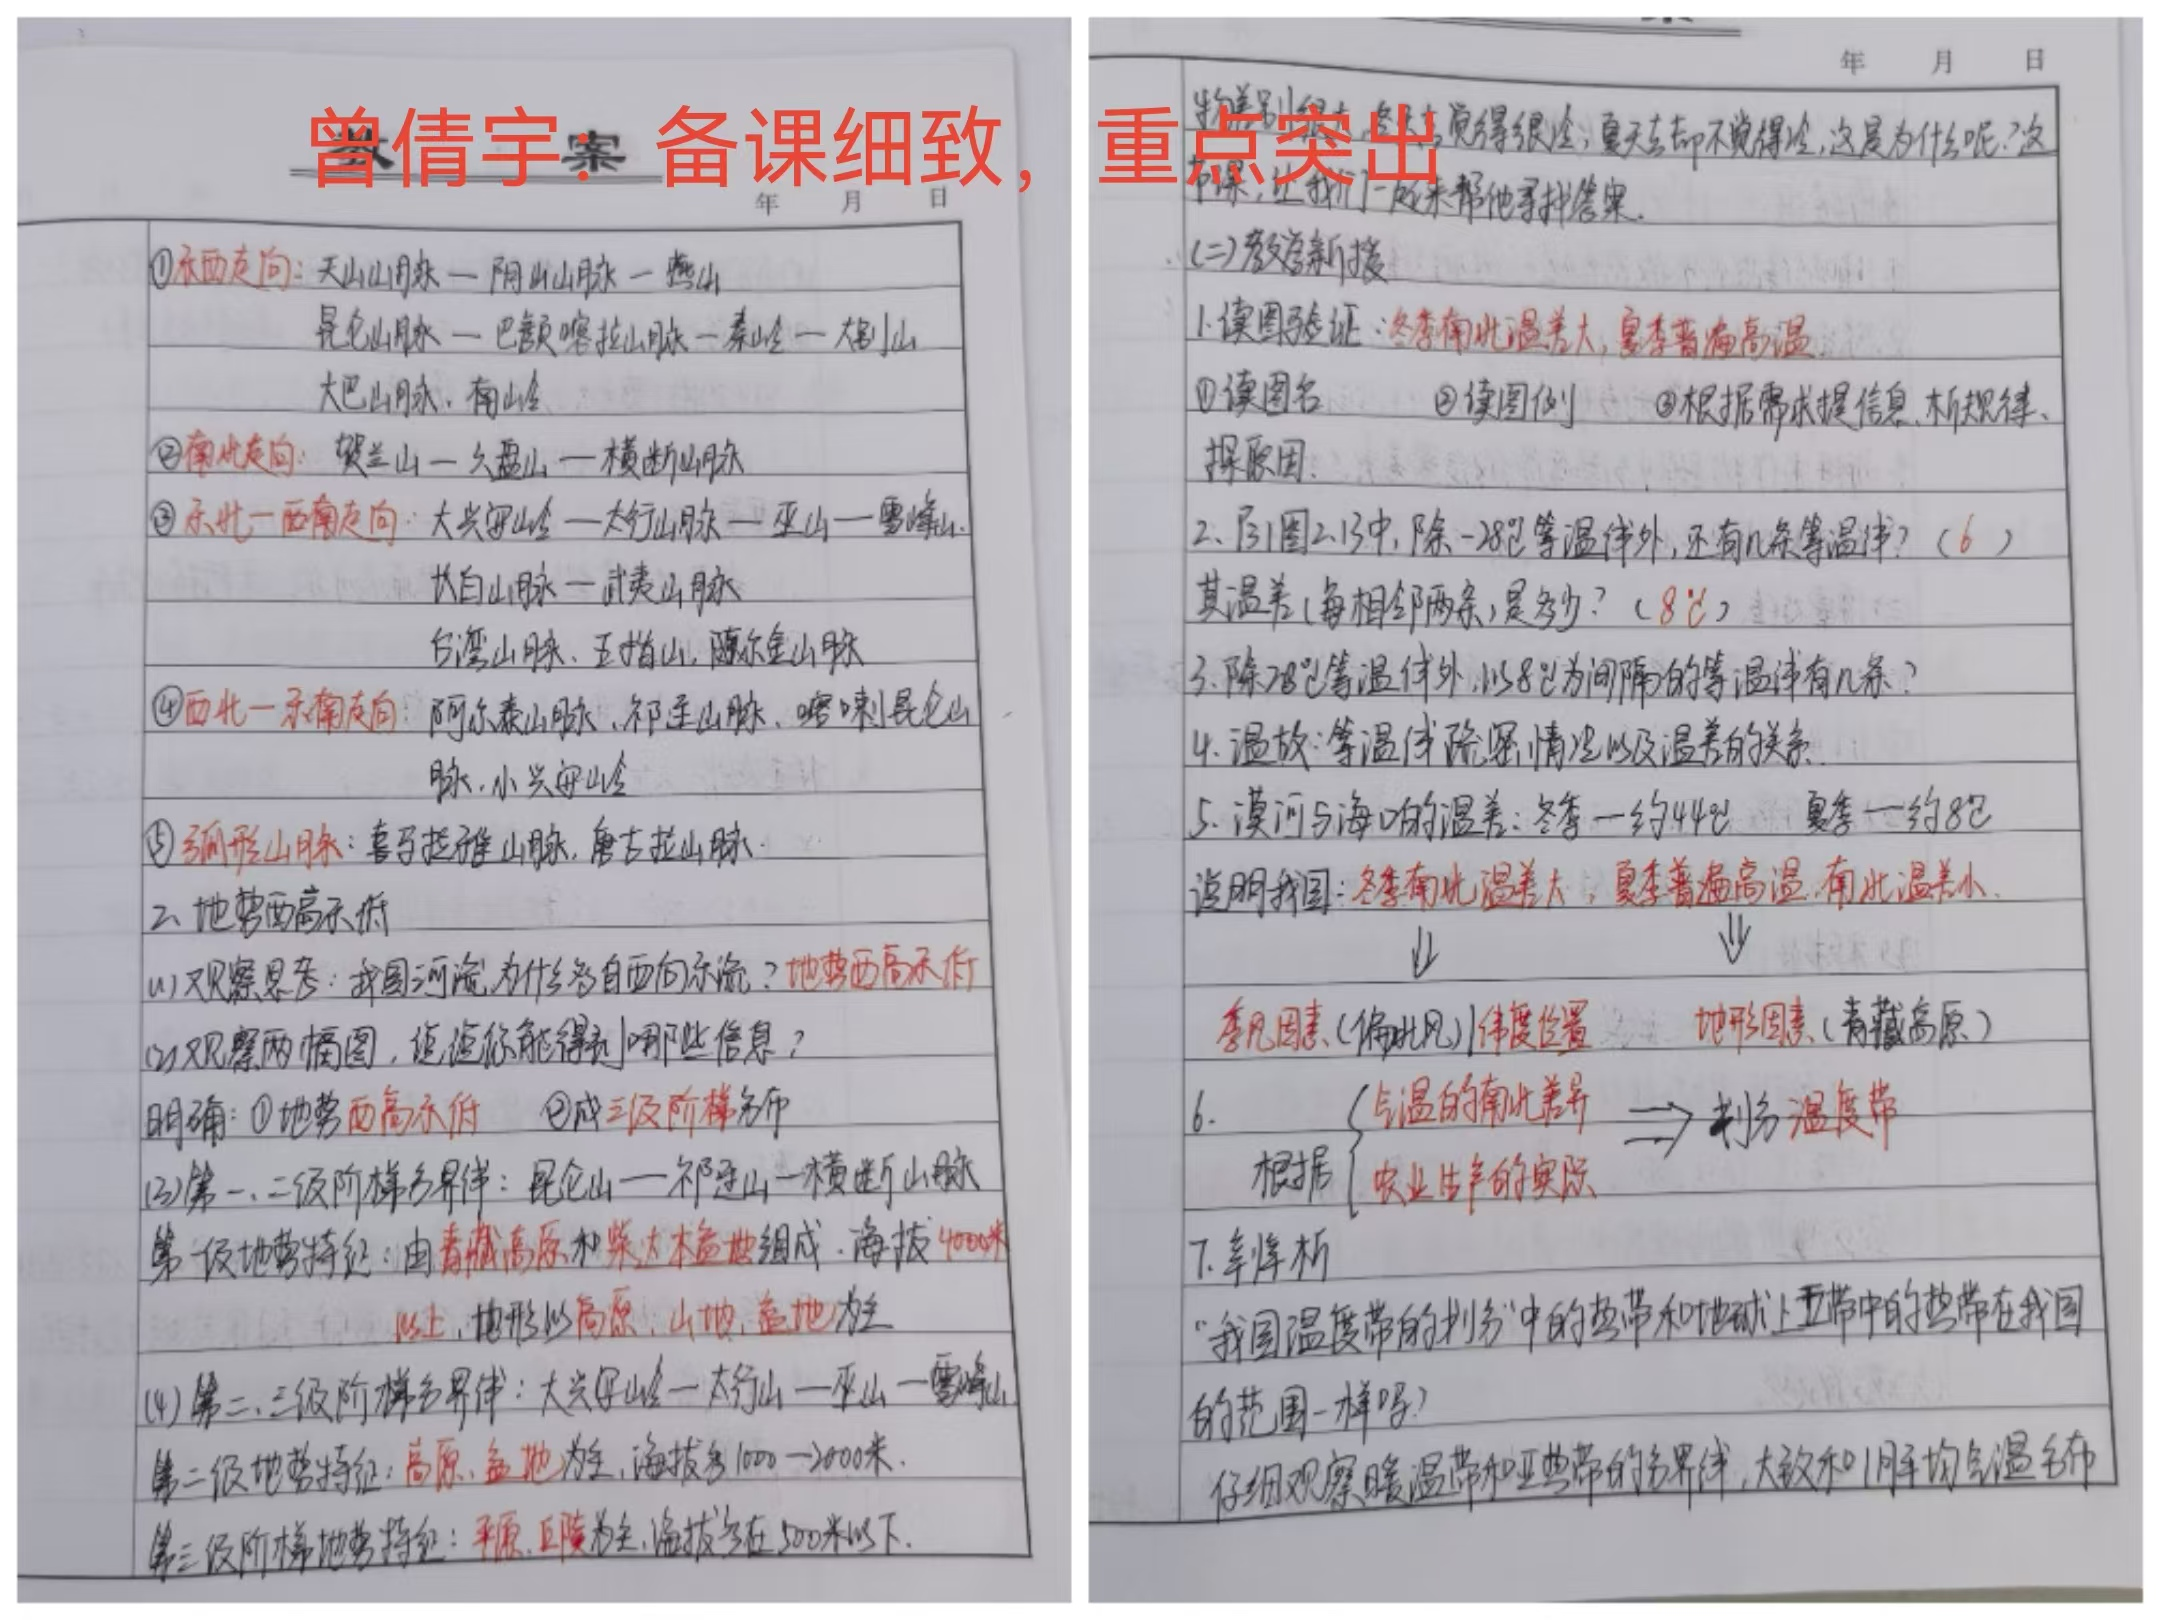 曾倩宇：备课细致，重点突出
教案
年 月 日
①东西走向：天山山脉—阴山山脉—燕山
昆仑山脉—巴颜喀拉山脉—秦岭—大别山
大巴山脉、南岭
②南北走向：贺兰山—六盘山—横断山脉
③东北—西南走向：大兴安岭—太行山脉—巫山—雪峰山.
长白山脉—武夷山脉
台湾山脉、五指山,
④西北—东南走向：阿尔泰山脉、祁连山脉、喀喇昆仑山
脉、小兴安岭
⑤弧形山脉：喜马拉雅山脉、唐古拉山脉.
2、地势西高东低
(1)观察思考：我国河流为什么多自西向东流？地势西高东低
(2)观察两幅图，说说你能得到哪些信息？
明确：①地势西高东低 ②成三级阶梯分布
(3)第一、二级阶梯分界线：昆仑山—祁连山—横断山脉
第一级地势特征：由青藏高原和柴达木盆地组成、海拔4000米
以上，地形以高原、山地、盆地为主
(4)第二、三级阶梯分界线：大兴安岭—太行山—巫山—雪峰山.
第二级地势特征：高原、盆地为主，海拔多1000—2000米.
第三级阶梯地势特征：平原、丘陵为主，海拔多在500米以下.
年 月 日
差别很大,冬天去觉得很冷；夏天去却不觉得冷，这是为什么呢？这
节课，让我们一起来帮他寻找答案.
(二)教学新授
1.读图验证：冬季南北温差大，夏季普遍高温.
①读图名 ②读图例 ③根据需求提信息、析规律、
探原因.
2、图2.13中，除-28℃等温线外，还有几条等温线？（6）
其温差(每相邻两条)是多少？（8℃）
3.除28℃等温线外，以8℃为间隔的等温线有几条？
4.温故：等温线疏密情况以及温差的关系.
5.漠河与海口的温差：冬季—约44℃ 夏季—约8℃
说明我国：冬季南北温差大，夏季普遍高温、南北温差小.
⇓ ⇓
季风因素(偏北风)纬度位置 地形因素(青藏高原)
6. 气温的南北差异
根据 ⇒ 划分温度带
农业生产的实际
7.辨析
“我国温度带的划分”中的热带和地球上五带中的热带在我国
的范围一样吗？
仔细观察暖温带和亚热带的分界线，大致和1月平均气温分布